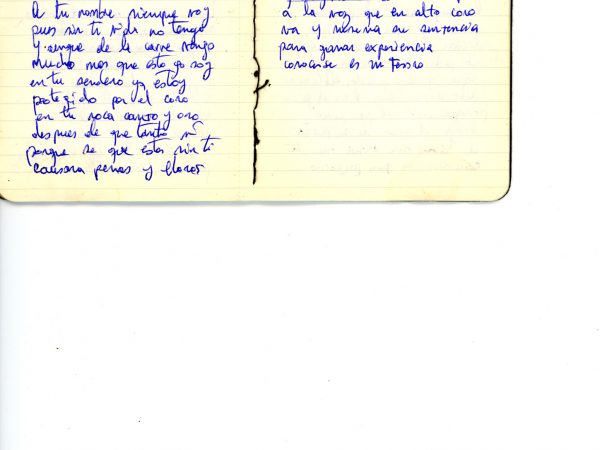 A tu nombre siempre voy
pues sin ti vida no tengo
y aunque de la carne vengo
mucho mas que esto yo soy
en tu sendero yo estoy
protegido por el coro
en tu roca canto y oro
despues de que tanto
porque se que estar sin ti
causara penas y lloros
a la voz que en alto coro
va y su sentencia
para ganar experiencia
conocerse es un tesoro